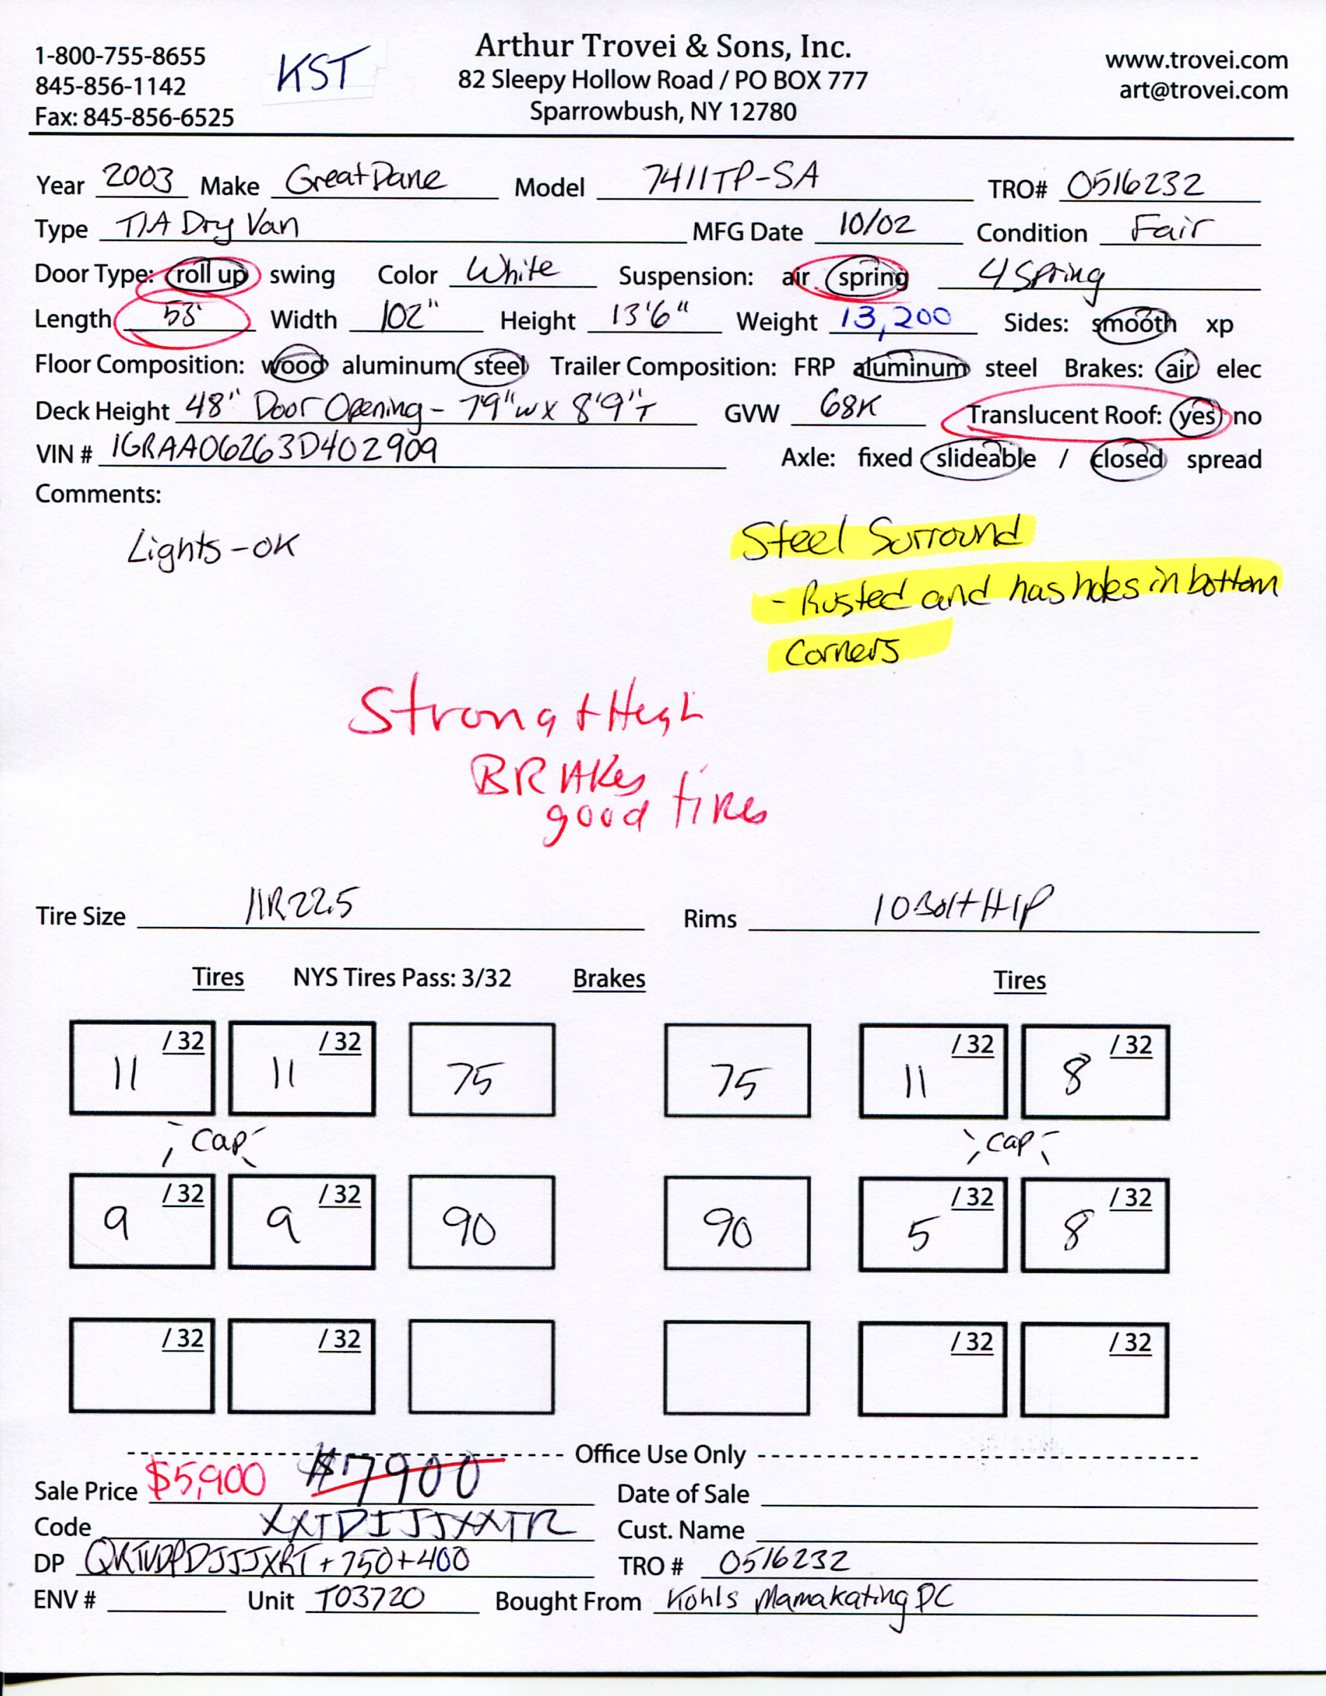 1-800-755-8655
845-856-1142
Fax: 845-856-6525
KST
Arthur Trovei & Sons, Inc.
82 Sleepy Hollow Road / PO BOX 777
Sparrowbush, NY 12780
www.trovei.com
art@trovei.com
Year 2003 Make Great Dane Model 7411TP-SA TRO# 0516232
Type T/A Dry Van MFG Date 10/02 Condition Fair
Door Type: roll up swing Color White Suspension: air spring 4 Spring
Length 53' Width 102" Height 13'6" Weight 13,200 Sides: smooth xp
Floor Composition: wood aluminum steel Trailer Composition: FRP aluminum steel Brakes: air elec
Deck Height 48" Door Opening - 79"w x 8'9"T GVW 68K Translucent Roof: yes no
VIN # 1GRAA06263D402909 Axle: fixed slideable / closed spread
Comments:
Lights - OK
Steel Surround
- Rusted and has holes in bottom
Corners
Strong + High
BRAKes
good tires
Tire Size 11R22.5 Rims 10 Bolt H/P
Tires NYS Tires Pass: 3/32 Brakes Tires
11 /32 11 /32 75 75 11 /32 8 /32
Cap Cap
9 /32 9 /32 90 90 5 /32 8 /32
/32 /32 /32 /32
Office Use Only
Sale Price $5,900 $7900 Date of Sale
Code XXTDIJJXXTR Cust. Name
DP + 750 + 400 TRO # 0516232
ENV # Unit T03720 Bought From Kohls Mamakating PC